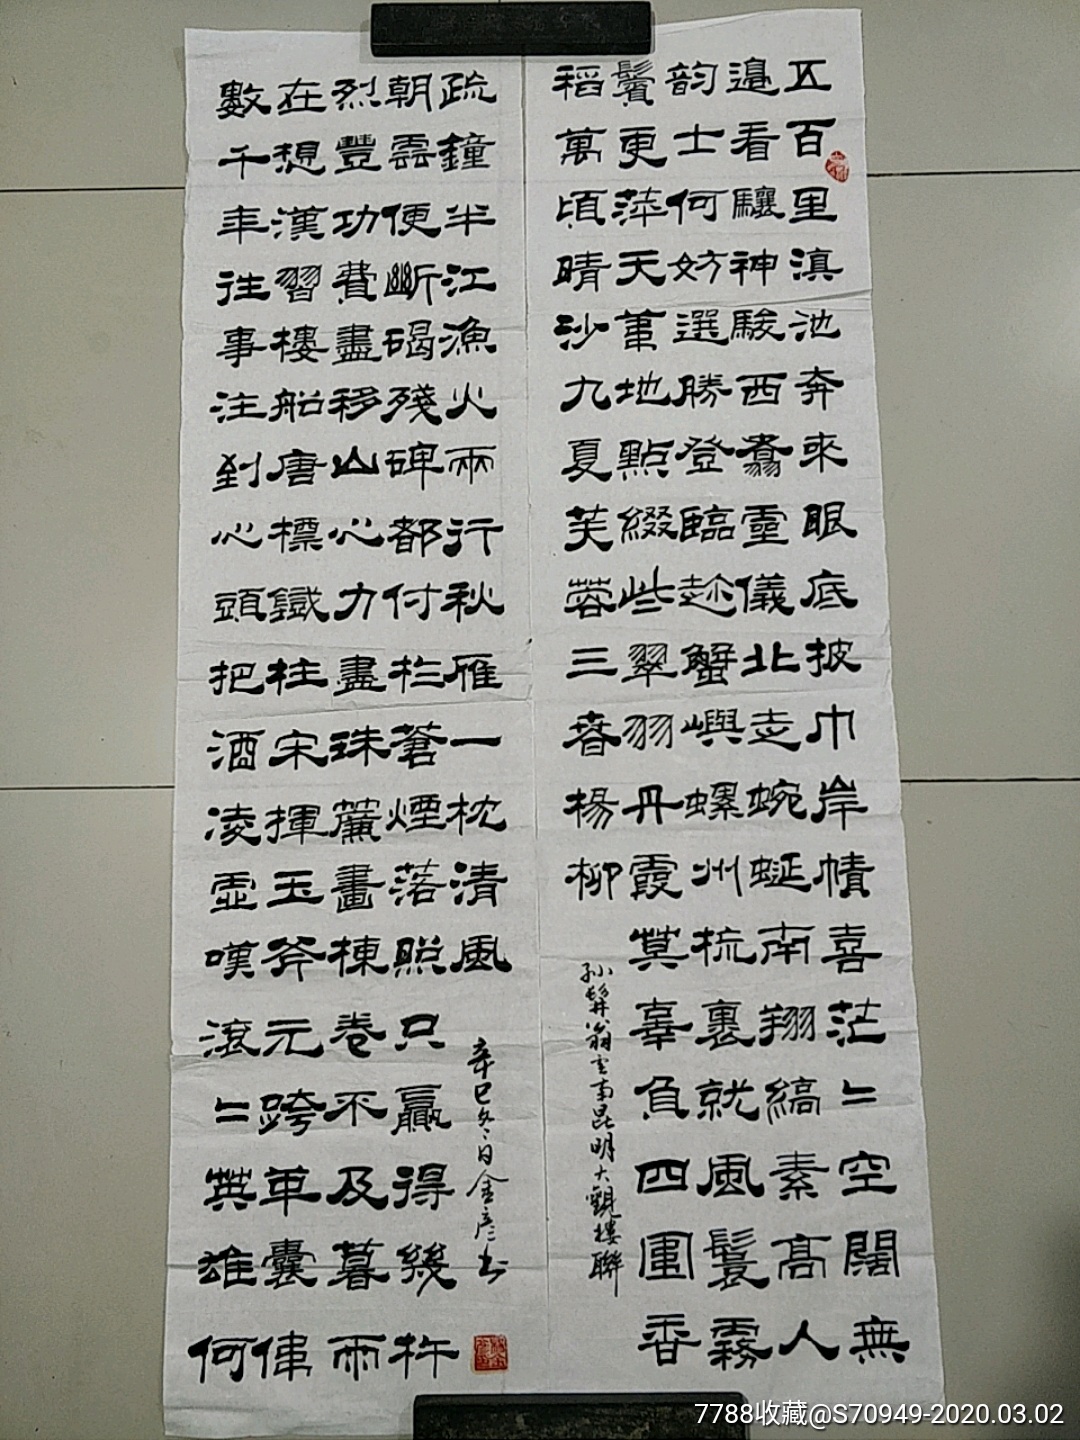 五百里滇池奔來眼底披巾岸幘喜茫〻空闊無
邉看驤神駿西翥靈儀北走蜿蜒南翔縞素高人
韵士何妨選勝登臨趂蟹嶼螺州梳裹就風鬟霧
鬢更萍天葦地點綴些翠羽丹霞莫辜負四圍香
稻萬頃晴沙九夏芙蓉三春楊柳
孙髯翁云南昆明大觀樓聯
數千年往事注到心頭把酒凌虛嘆滾〻英雄何
在想漢習樓船唐標鐵柱宋揮玉斧元跨革囊偉
烈豐功費盡移山心力盡珠簾畫棟卷不及暮雨
朝雲便斷碣殘碑都付於蒼煙落照只贏得幾杵
疏鐘半江漁火兩行秋雁一枕清風
辛巳冬日金彦书
7788收藏@S70949-2020.03.02